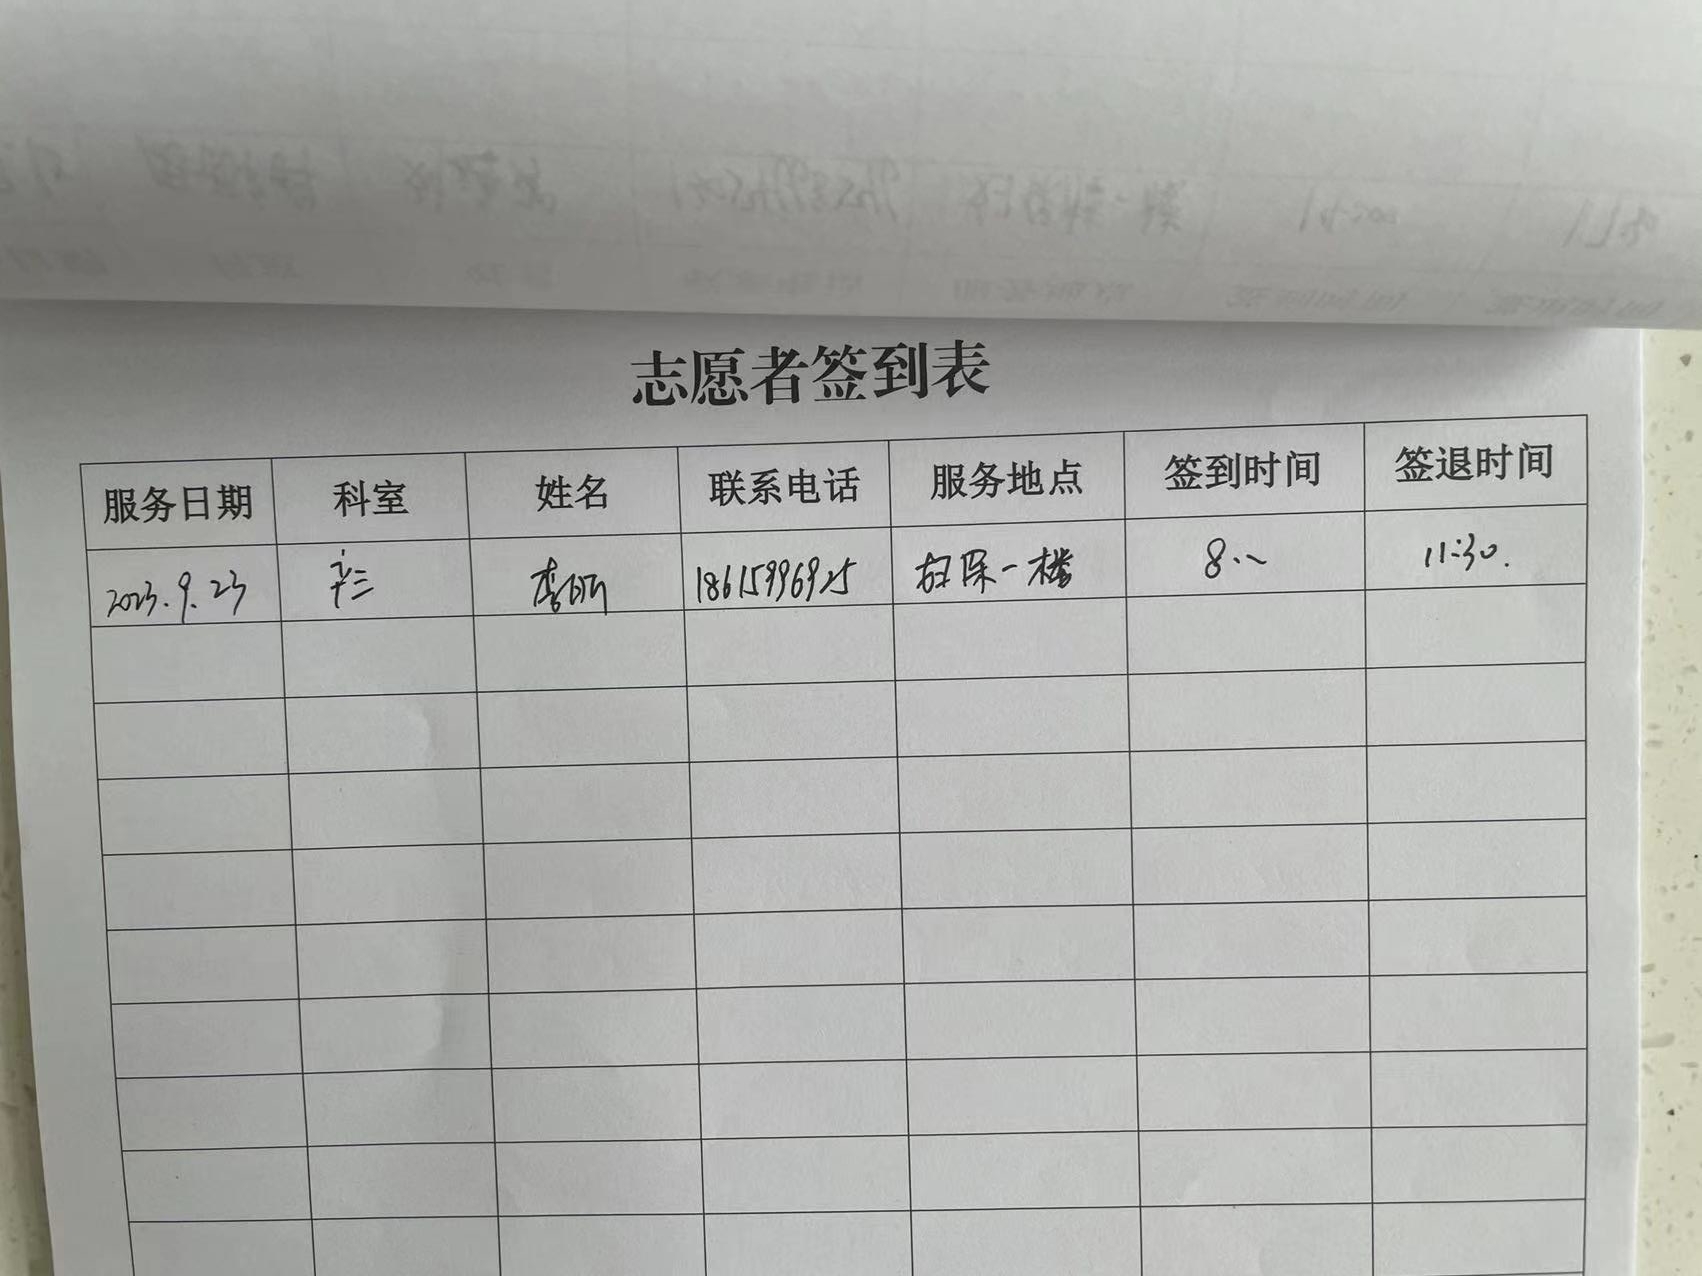 志愿者签到表
服务日期 科室 姓名 联系电话 服务地点 签到时间 签退时间
2023.9.23 产三 李 18615996925 妇保一楼 8:00 11:30.